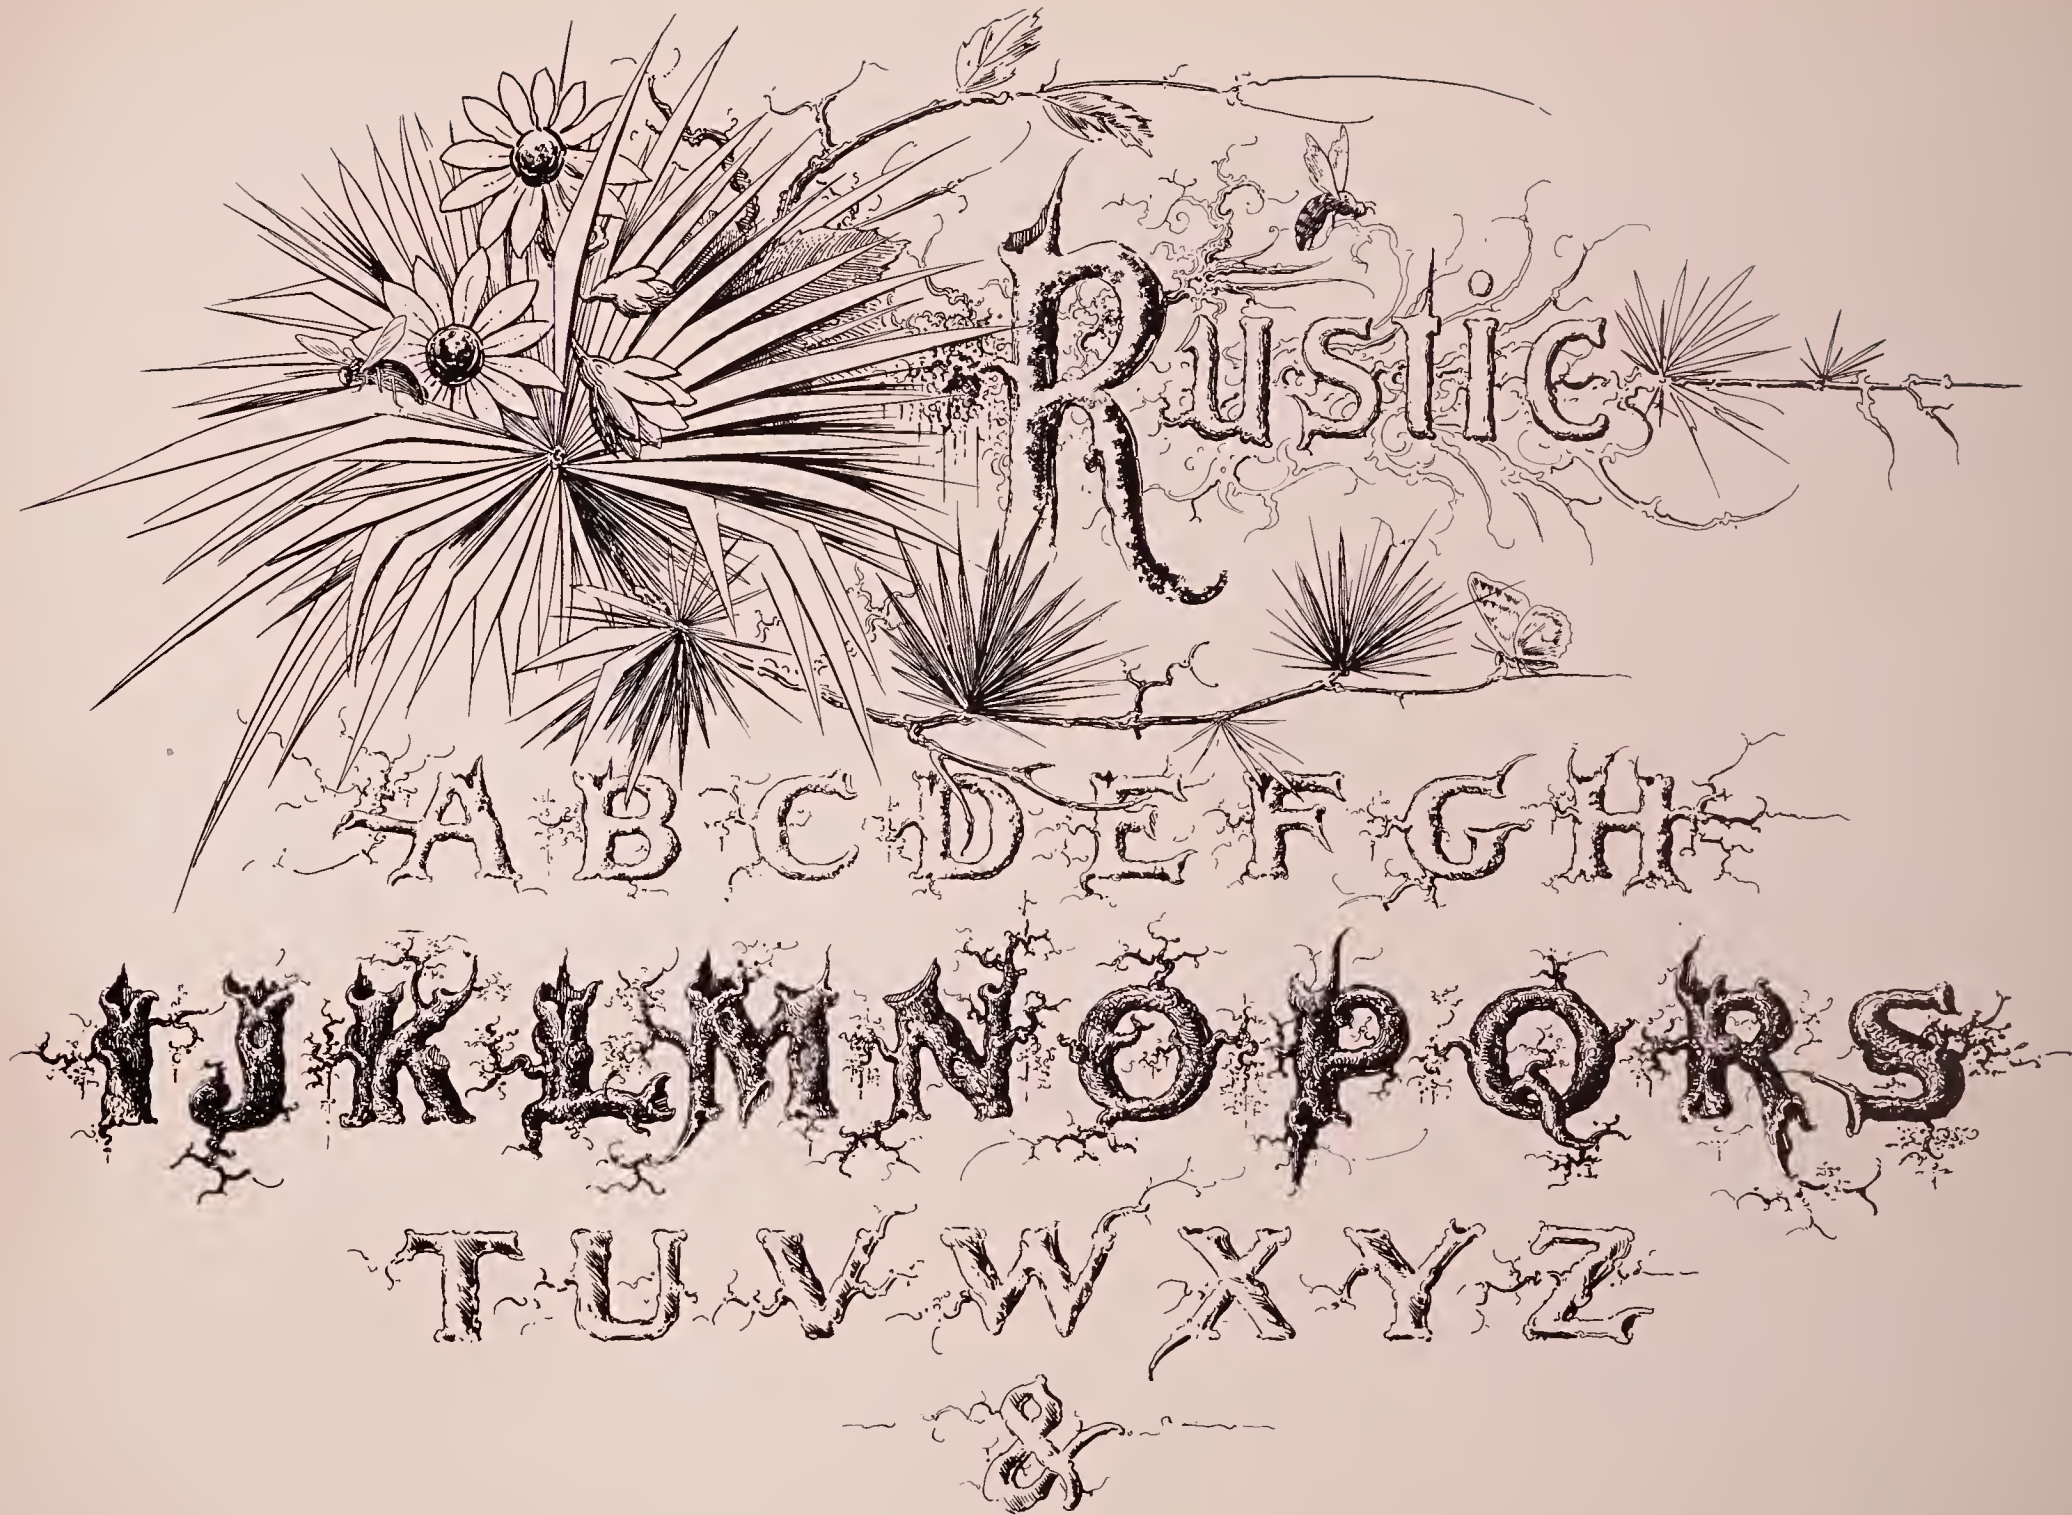 Rustic
ABCDEFGH
IJKLMNOPQRS
TUVWXYZ
&